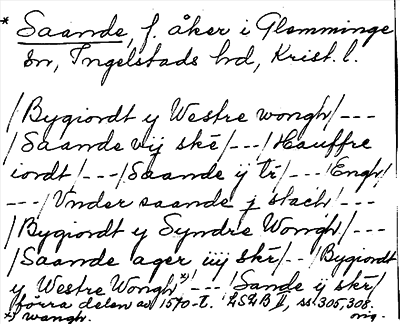 * Saande, f. åker i Glemminge
sn, Ingelstads hd, Krist. l.
/Bygiordt y Westre wongh/---
/Saande vij skē/---/Hauffre
iordt/---/Saande ÿ tī/---/Engh/
---/Vnder saande j stach/---
/Bygiordt y Syndre Wongh/---
/Saande ager iiij skē/--/Bygiordt
y Westre Wongh*)/---/Sande ij skē/
förra delen av 1570-t. LSLB II, ss 305, 308.
*) wangh. orig.